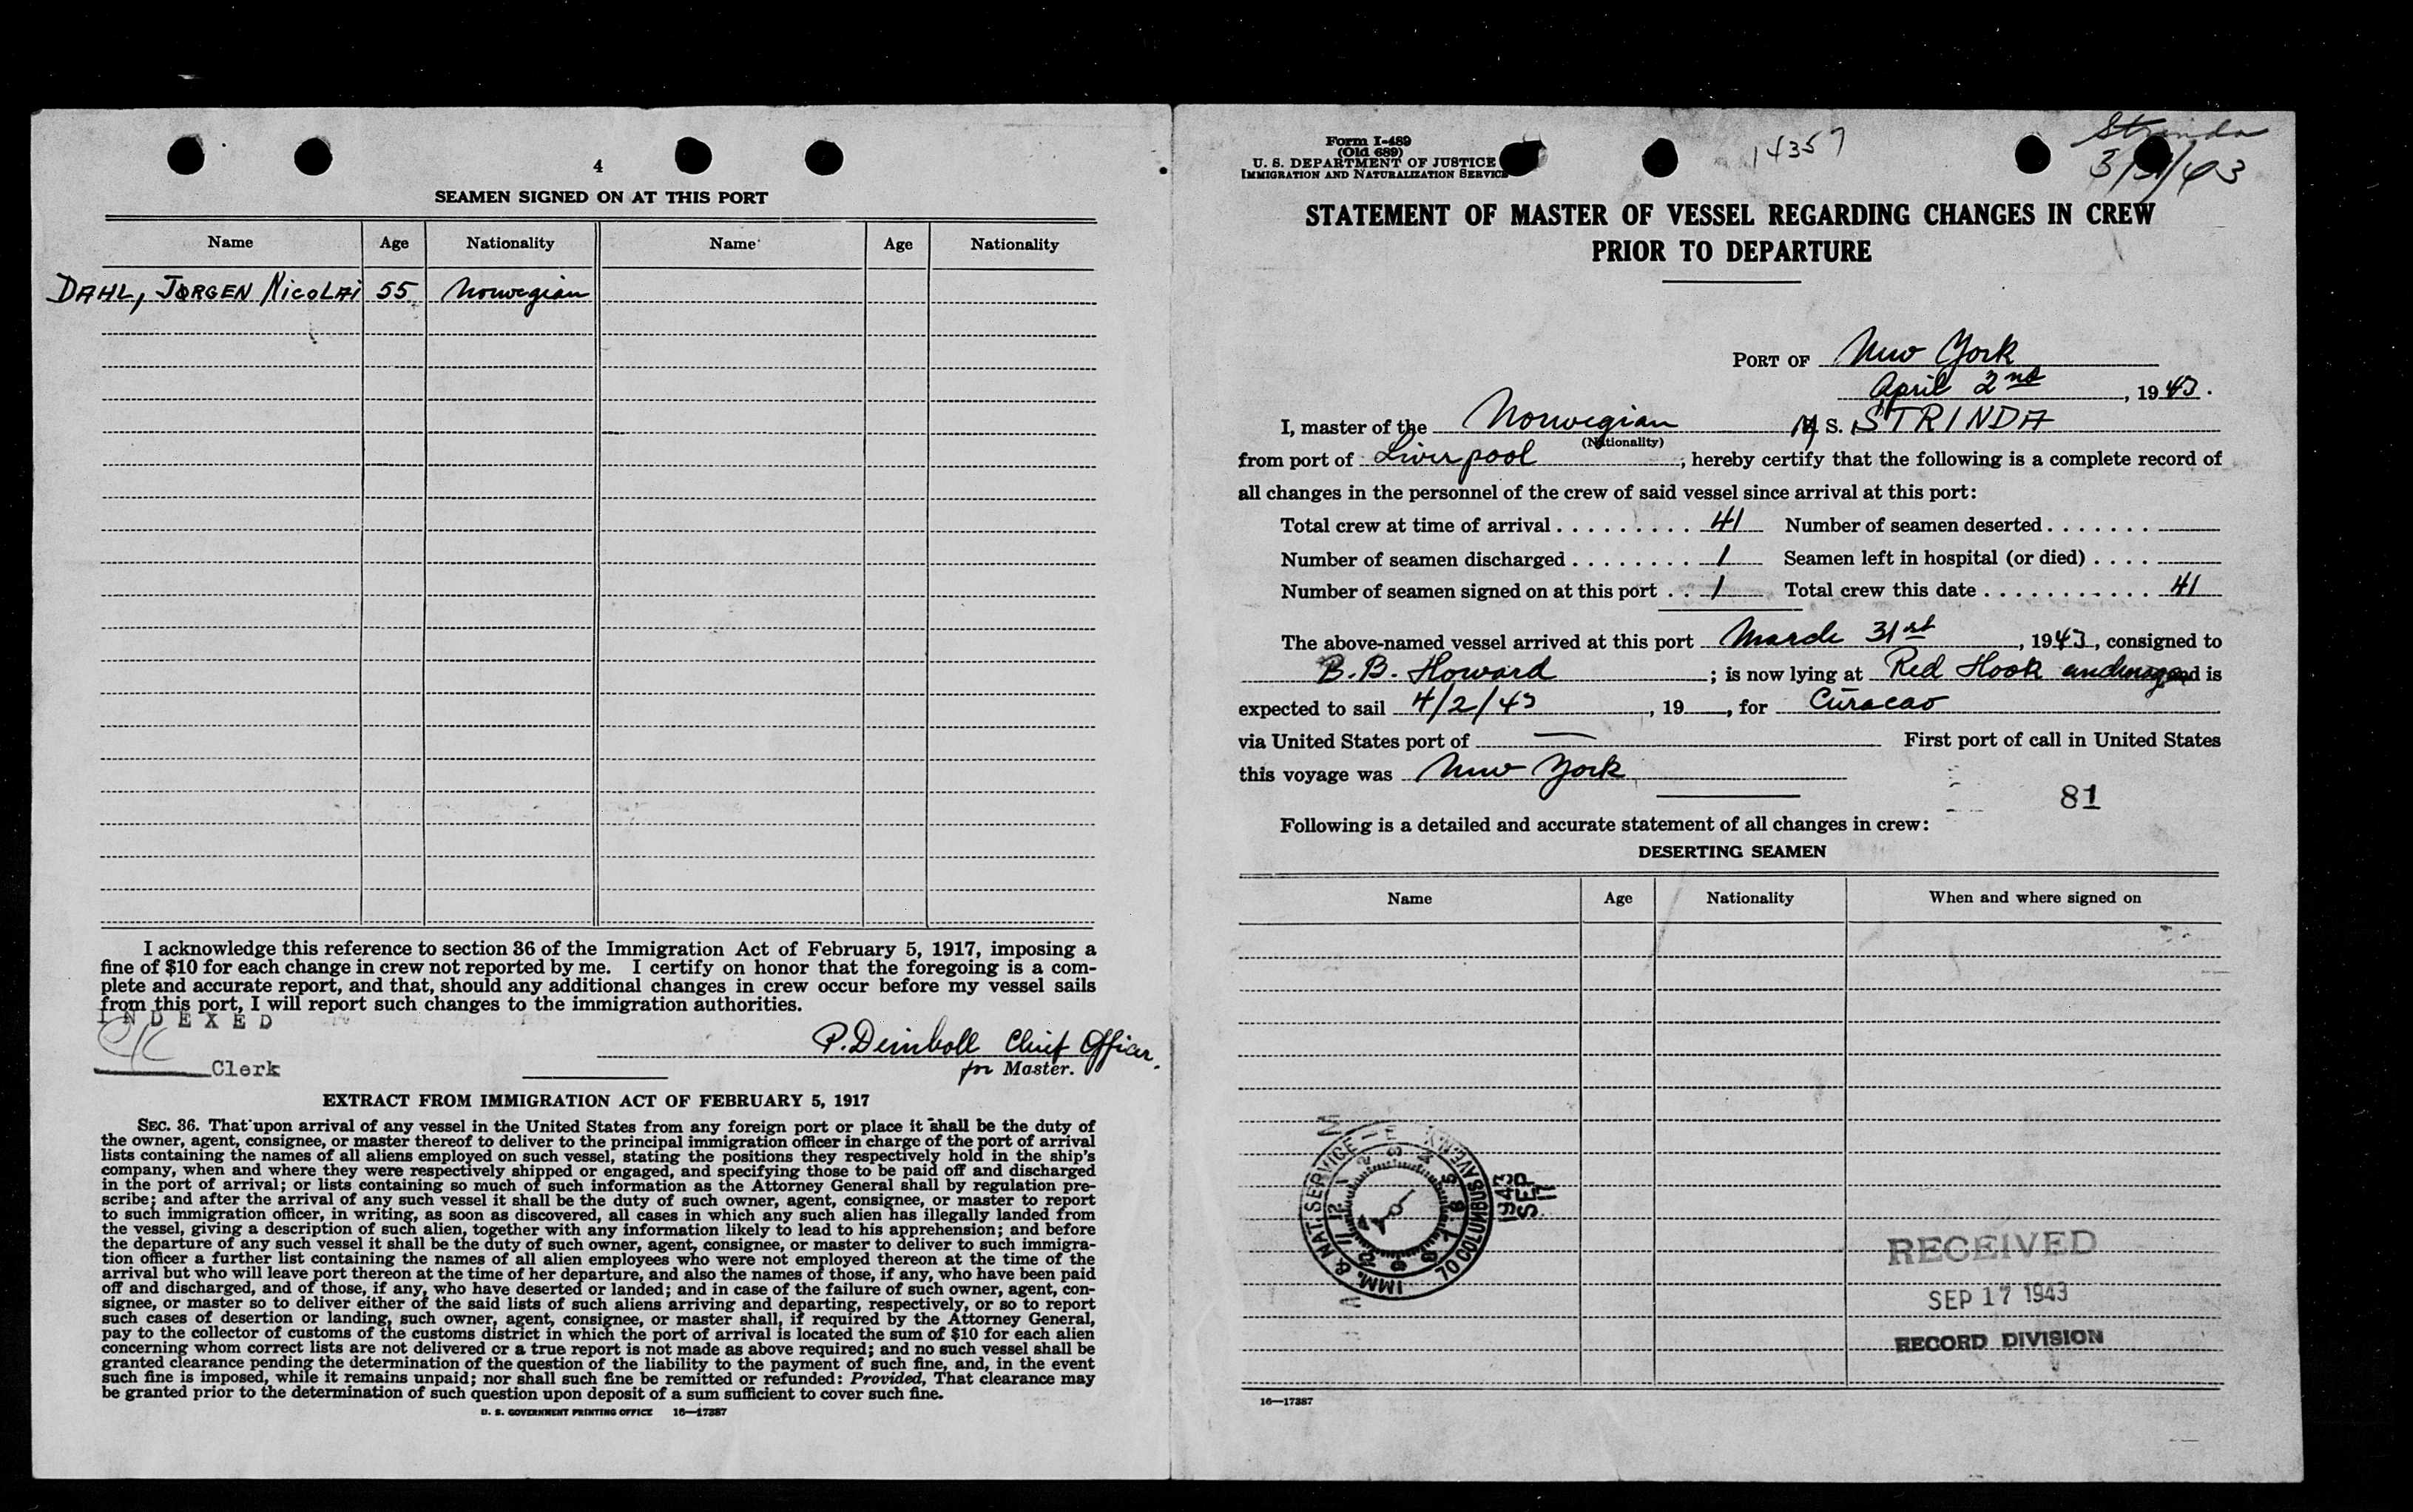 4
SEAMEN SIGNED ON AT THIS PORT
Name Age Nationality Name Age Nationality
DAHL, JØRGEN NICOLAI 55 Norwegian
I acknowledge this reference to section 36 of the Immigration Act of February 5, 1917, imposing a
fine of $10 for each change in crew not reported by me. I certify on honor that the foregoing is a com-
plete and accurate report, and that, should any additional changes in crew occur before my vessel sails
from this port, I will report such changes to the immigration authorities.
INDEXED
Clerk
P. Deinboll Chief Officer.
for Master.
EXTRACT FROM IMMIGRATION ACT OF FEBRUARY 5, 1917
SEC. 36. That upon arrival of any vessel in the United States from any foreign port or place it shall be the duty of
the owner, agent, consignee, or master thereof to deliver to the principal immigration officer in charge of the port of arrival
lists containing the names of all aliens employed on such vessel, stating the positions they respectively hold in the ship's
company, when and where they were respectively shipped or engaged, and specifying those to be paid off and discharged
in the port of arrival; or lists containing so much of such information as the Attorney General shall by regulation pre-
scribe; and after the arrival of any such vessel it shall be the duty of such owner, agent, consignee, or master to report
to such immigration officer, in writing, as soon as discovered, all cases in which any such alien has illegally landed from
the vessel, giving a description of such alien, together with any information likely to lead to his apprehension; and before
the departure of any such vessel it shall be the duty of such owner, agent, consignee, or master to deliver to such immigra-
tion officer a further list containing the names of all alien employees who were not employed thereon at the time of the
arrival but who will leave port thereon at the time of her departure, and also the names of those, if any, who have been paid
off and discharged, and of those, if any, who have deserted or landed; and in case of the failure of such owner, agent, con-
signee, or master so to deliver either of the said lists of such aliens arriving and departing, respectively, or so to report
such cases of desertion or landing, such owner, agent, consignee, or master shall, if required by the Attorney General,
pay to the collector of customs of the customs district in which the port of arrival is located the sum of $10 for each alien
concerning whom correct lists are not delivered or a true report is not made as above required; and no such vessel shall be
granted clearance pending the determination of the question of the liability to the payment of such fine, and, in the event
such fine is imposed, while it remains unpaid; nor shall such fine be remitted or refunded: Provided, That clearance may
be granted prior to the determination of such question upon deposit of a sum sufficient to cover such fine.
U. S. GOVERNMENT PRINTING OFFICE 16—17387
Form I-489
(Old 689)
U. S. DEPARTMENT OF JUSTICE
IMMIGRATION AND NATURALIZATION SERVICE
14357
Strinda
3/31/43
STATEMENT OF MASTER OF VESSEL REGARDING CHANGES IN CREW
PRIOR TO DEPARTURE
PORT OF New York
April 2nd, 1943.
I, master of the Norwegian M S. STRINDA
(Nationality)
from port of Liverpool; hereby certify that the following is a complete record of
all changes in the personnel of the crew of said vessel since arrival at this port:
Total crew at time of arrival . . . . . . . . . 41 Number of seamen deserted . . . . . . .
Number of seamen discharged . . . . . . . . 1 Seamen left in hospital (or died) . . . .
Number of seamen signed on at this port . . 1 Total crew this date . . . . . . . . . . . . 41
The above-named vessel arrived at this port March 31st, 1943, consigned to
B.B. Howard; is now lying at Red Hook and is
expected to sail 4/2/43, 19, for Curacao
via United States port of — First port of call in United States
this voyage was New York
81
Following is a detailed and accurate statement of all changes in crew:
DESERTING SEAMEN
Name Age Nationality When and where signed on
IMM. & NAT. SERVICE 70 COLUMBUS AVE N.Y.
1943
SEP
17
RECEIVED
SEP 17 1943
RECORD DIVISION
16—17387